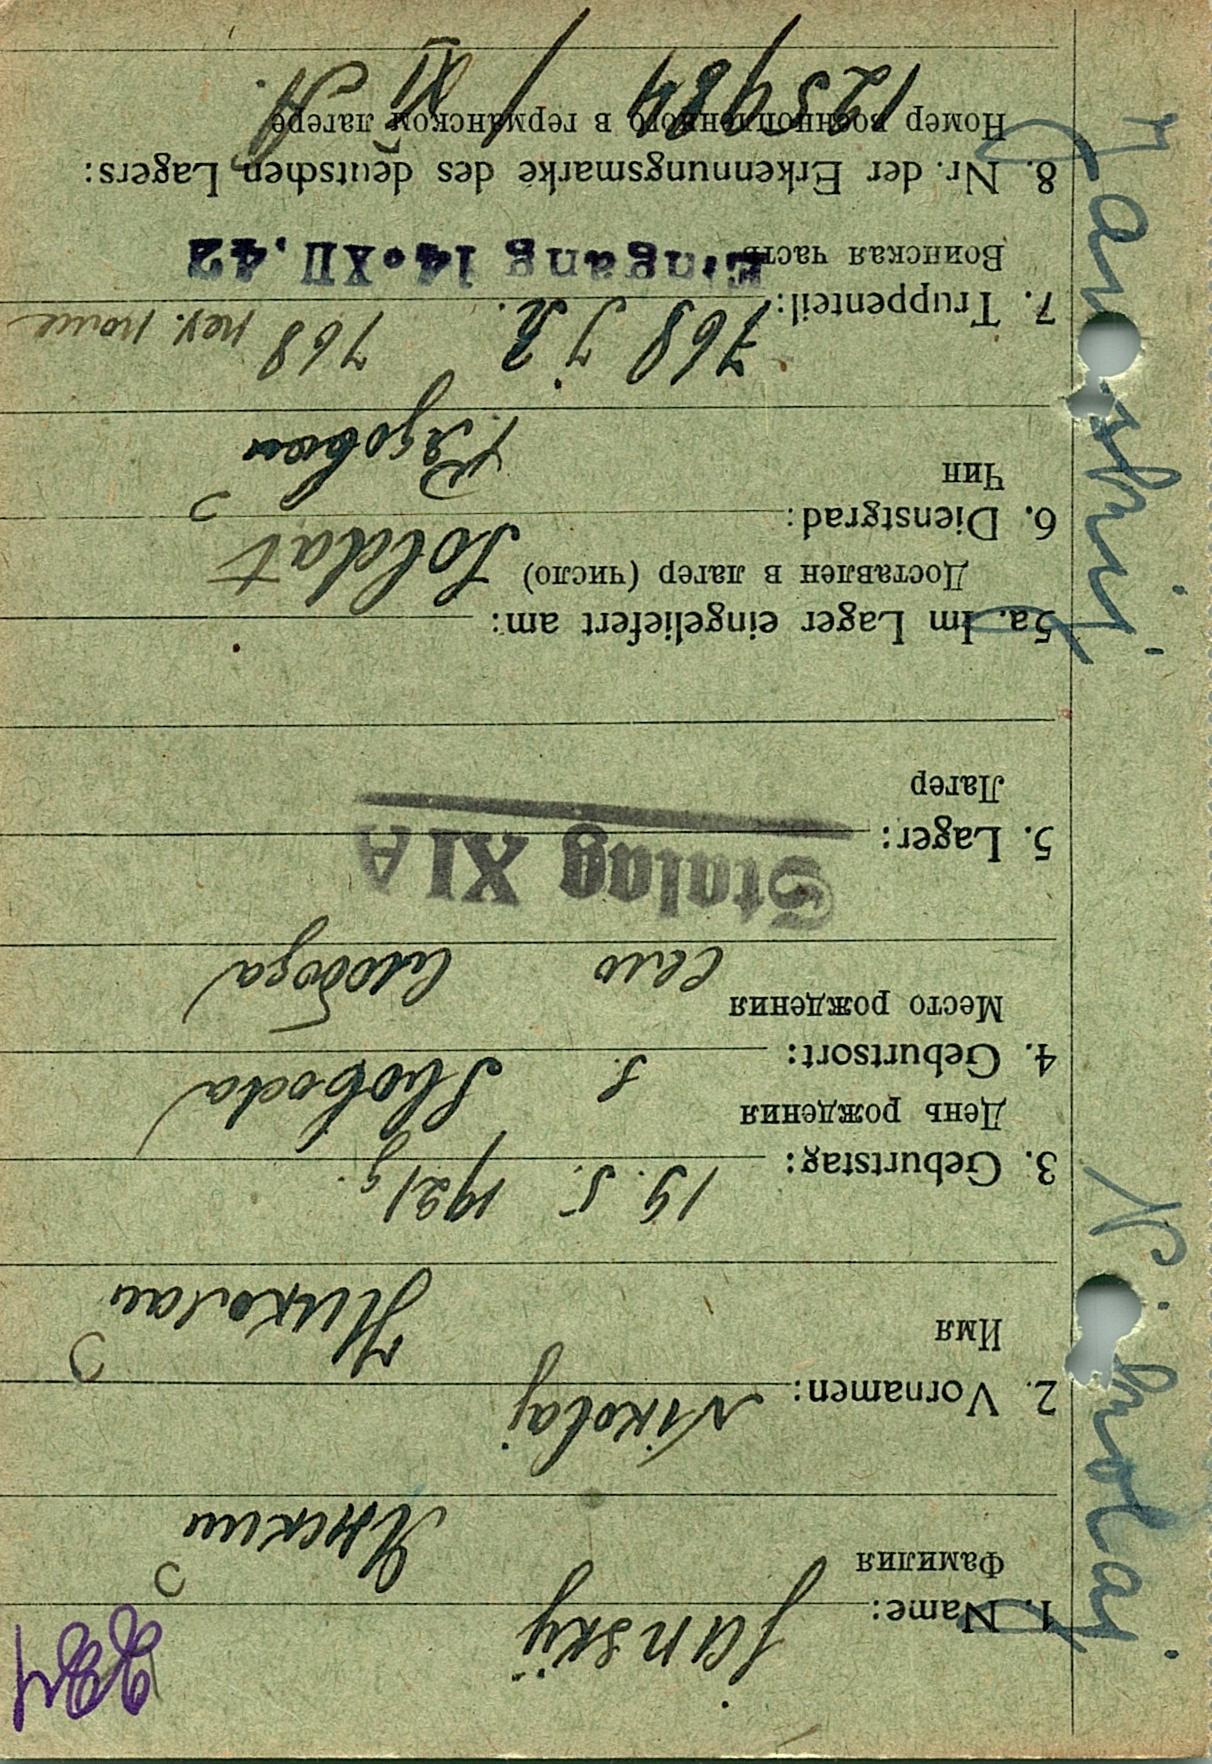 284
1. Name: Janskÿ
Фамилия Янский
2. Vornamen: Nikolaj
Имя Николай
3. Geburtstag: 19. 5. 1921 g.
День рождения
4. Geburtsort: S. Sloboda
Место рождения село Слобода
5. Lager: Stalag XI A
Лагер
5a. Im Lager eingeliefert am:
Доставлен в лагер (число)
6. Dienstgrad: Soldat
Чин Рядовой
7. Truppenteil: 768 J. R. 768
Воинская часть Eingang 14. XII. 42
8. Nr. der Erkennungsmarke des deutschen Lagers:
Номер военнопленного в германском лагере
/ XI A.
Janskij Nikolaj